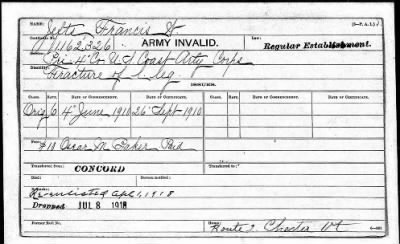 Name, Jolts Francis W (3-P.A.I.)
Certificate 1162326 ARMY INVALID. Law: Regular Establishment.
Service: Pri 4" Co U S Coast Arty Corps
Disability: Fracture of L. leg.
ISSUES.
CLASS. RATE. DATE OF COMMENCEMENT. DATE OF CERTIFICATE. CLASS. RATE. DATE OF COMMENCEMENT. DATE OF CERTIFICATE.
Orig 6 4" June 1910 26" Sept 1910
$10 Oscar M Baker Paid
Transferred from CONCORD Transferred to
Remarks:
Re-enlisted Apl 1, 1918
Dropped JUL 8 1918
Former Roll No. Home: Route 2 Chester Vt